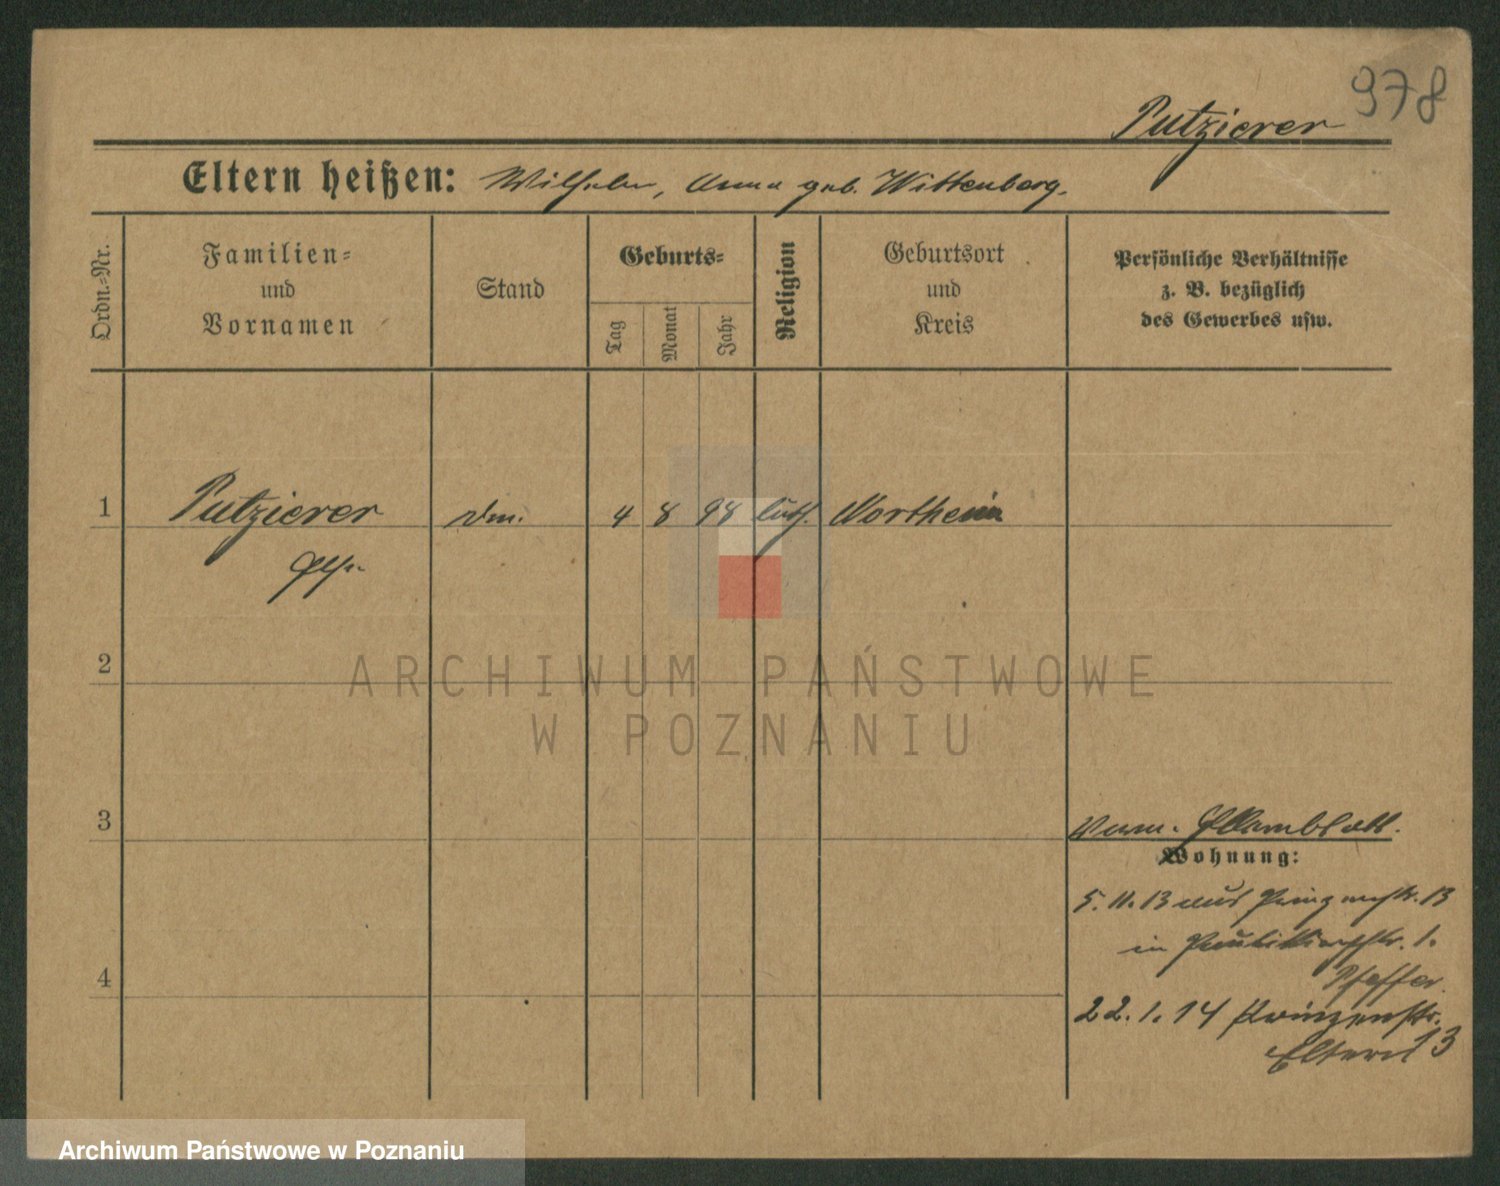 978
Putzierer
Eltern heißen: Wilhelm, Anna geb. Wittenberg.
Ordn.-Nr.
Familien- und Vornamen
Stand
Geburts-
Tag
Monat
Jahr
Religion
Geburtsort und Kreis
Persönliche Verhältnisse z. B. bezüglich des Gewerbes usw.
1 Putzierer 4 8 98 luth. Northeim
Else
2
ARCHIWUM PAŃSTWOWE
W POZNANIU
3
Wohnung:
5.11.13 aus Prinzenstr. 13
in Paulikirchstr. 1.
Pfeffer.
4
22.1.14 Prinzenstr. 13
Eltern
Archiwum Państwowe w Poznaniu